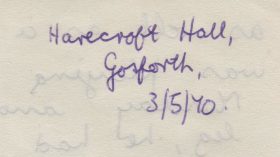 Harecroft Hall,
Gosforth,
3/5/70.